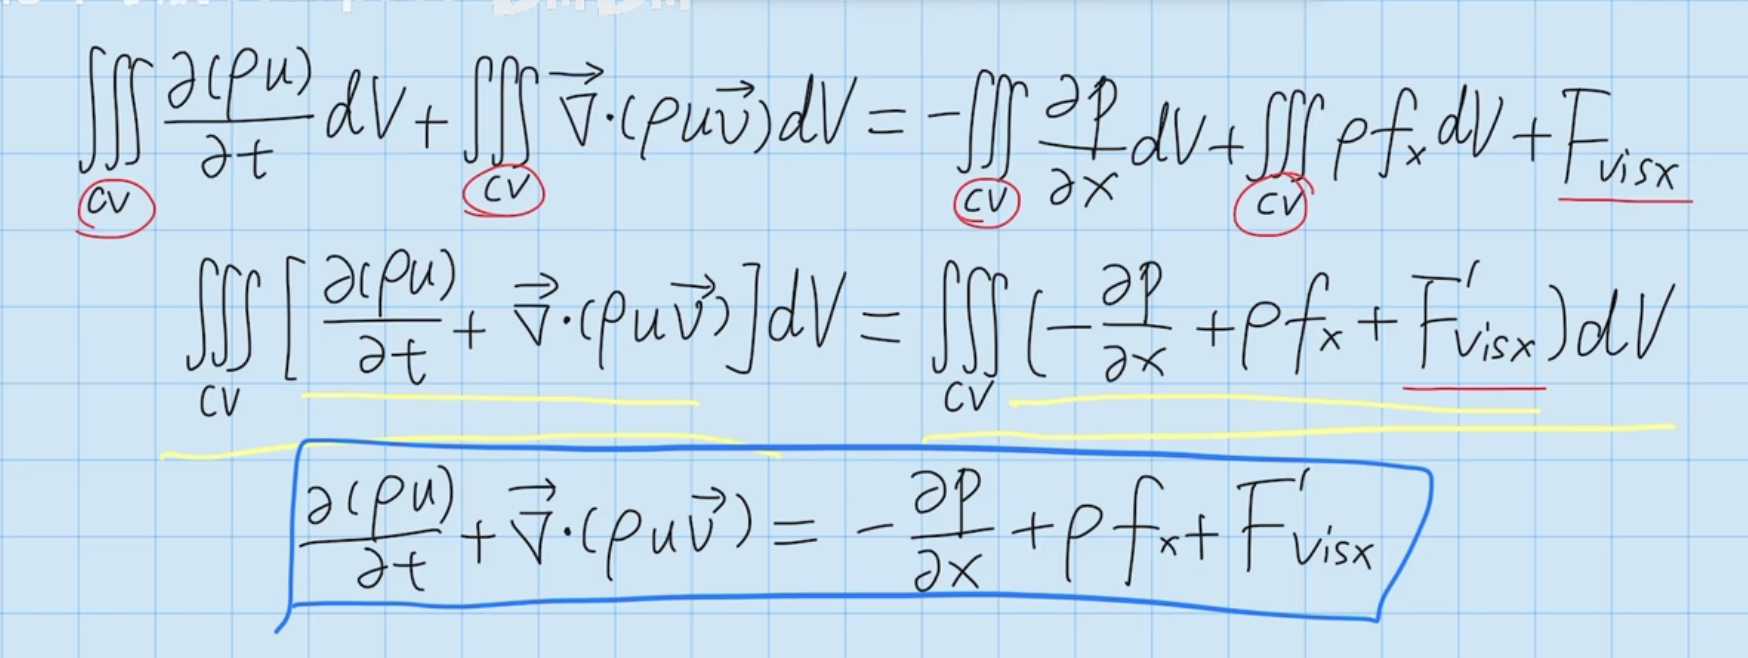 ∭_CV ∂(ρu)/∂t dV + ∭_CV ∇⃗·(ρuv⃗)dV = -∭_CV ∂p/∂x dV + ∭_CV ρf_x dV + F_visx
∭_CV [∂(ρu)/∂t + ∇⃗·(ρuv⃗)]dV = ∭_CV (-∂p/∂x + ρf_x + F'_visx)dV
∂(ρu)/∂t + ∇⃗·(ρuv⃗) = -∂p/∂x + ρf_x + F'_visx